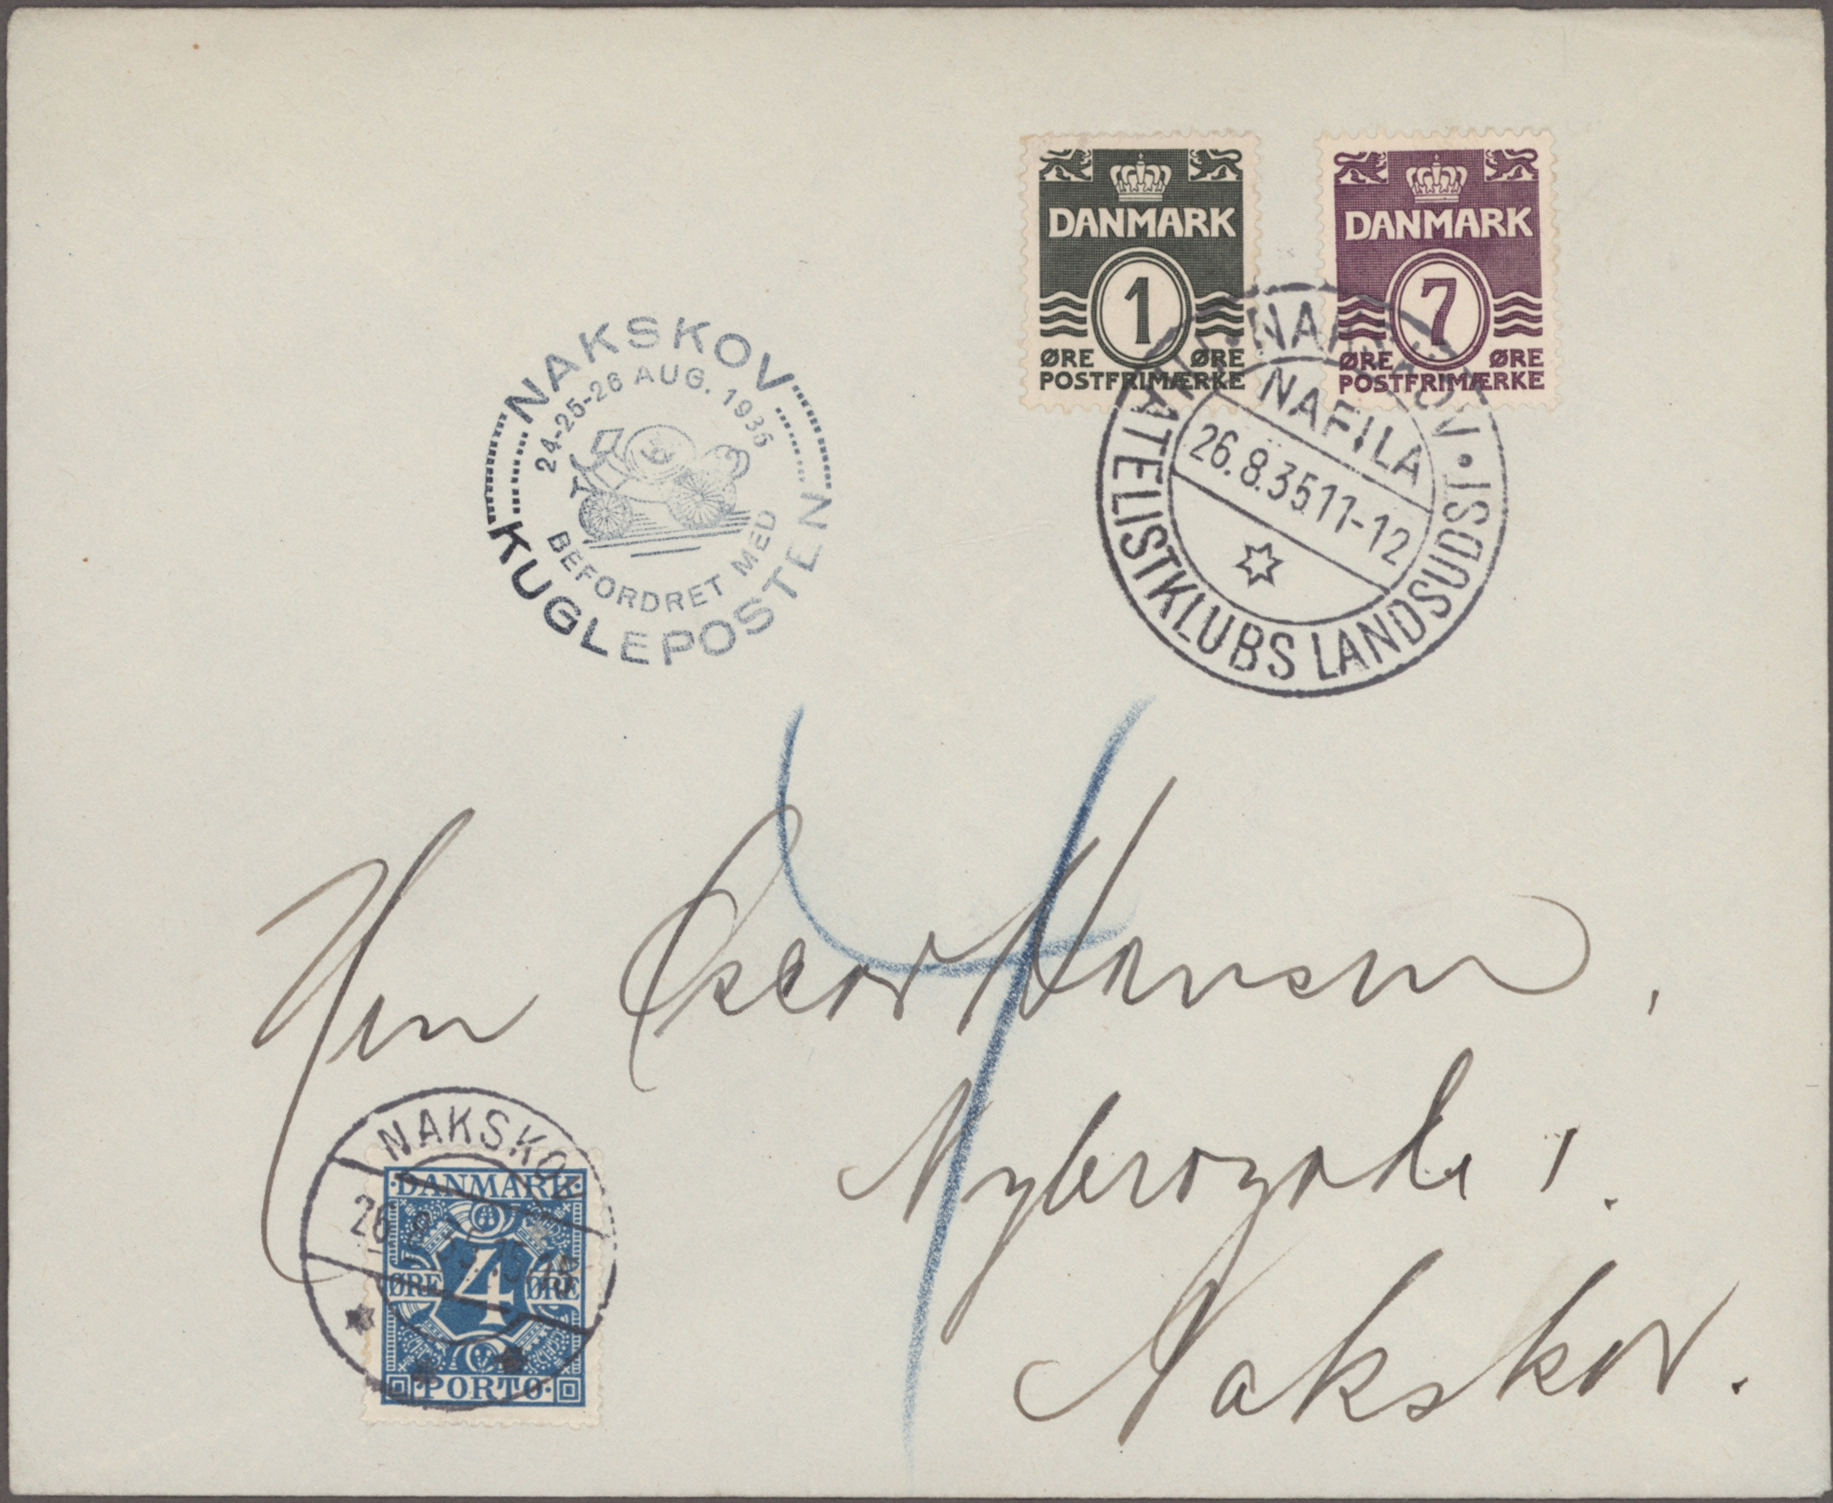 DANMARK
1
ØRE ØRE
POSTFRIMÆRKE
DANMARK
7
ØRE ØRE
POSTFRIMÆRKE
NAKSKOV
24-25-26 AUG. 1935
BEFORDRET MED
KUGLEPOSTEN
NAFILA
26.8.35 11-12
ATELISTKLUBS LANDSUDST.
4
Herr Oscar Hansen,
Nybrogade 1.
Nakskov.
NAKSKOV
DANMARK
ØRE 4 ØRE
PORTO